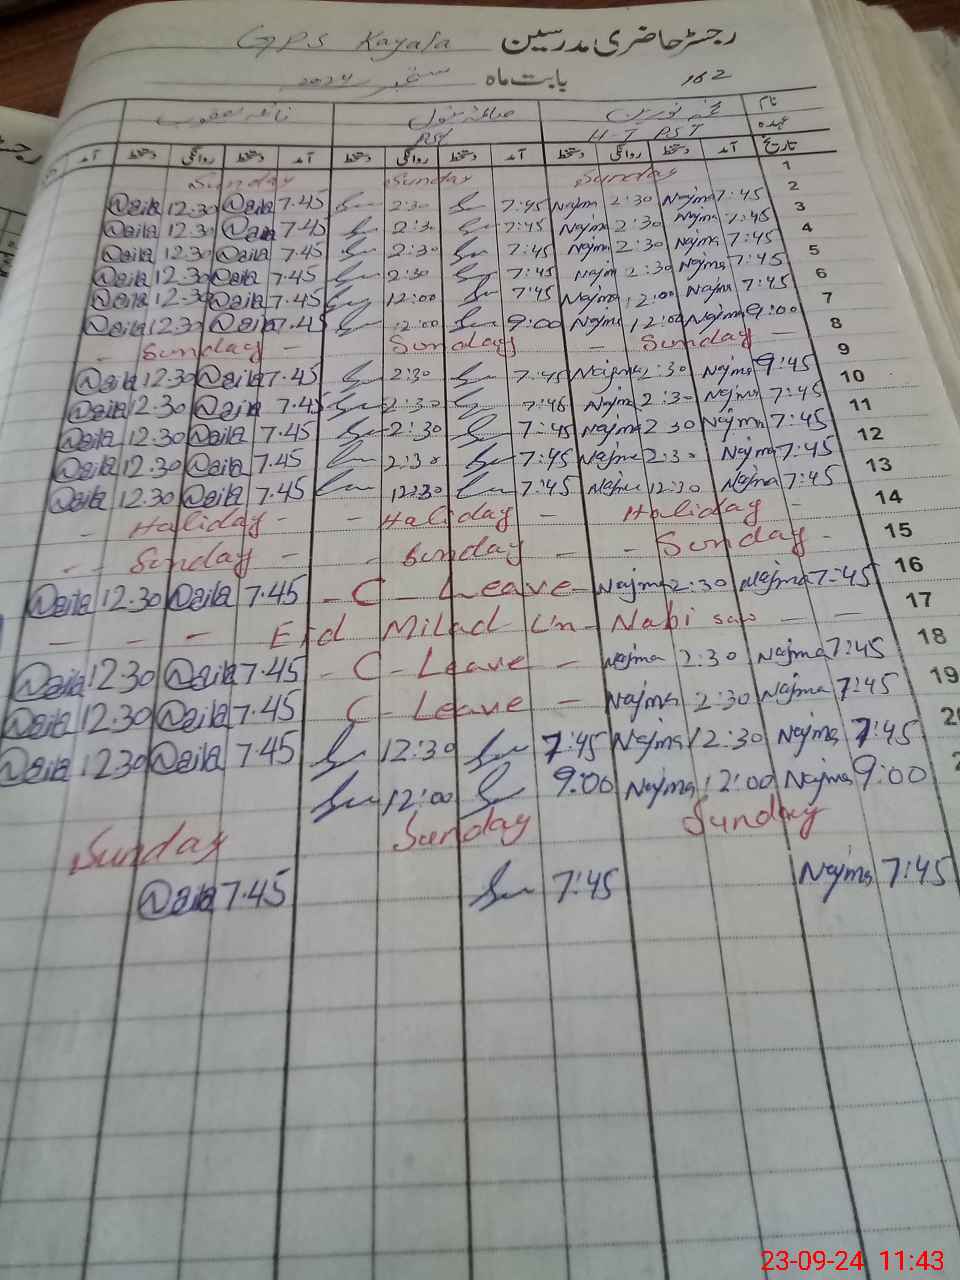 GPS Kayala رجسٹر حاضری مدرسین
بابت ماہ ستمبر 2024 162
نام
عہدہ H-T PST PST
تاریخ آمد دستخط روانگی دستخط آمد دستخط روانگی دستخط آمد دستخط روانگی دستخط آمد
1 Sunday Sunday Sunday
2 7:45 Najma 2:30 Najma 7:45 2:30 7.45 Naila 12.30 Naila
3 7:45 Najma 2:30 Najma 7:45 2:30 7.45 Naila 12.30 Naila
4 7:45 Najma 2:30 Najma 7:45 2:30 7.45 Naila 12.30 Naila
5 7:45 Najma 2:30 Najm 7:45 2:30 7.45 Naila 12.30 Naila
6 7:45 Najma 12:00 Najma 7:45 12:00 7.45 Naila 12.30 Naila
7 9:00 Najma 12:00 Najma 9:00 12:00 7.45 Naila 12.30 Naila
8 - Sunday - - Sunday - Sunday -
9 9:45 Najma 2:30 Najma 7:45 2:30 7.45 Naila 12.30 Naila
10 7:45 Najma 2:30 Najma 7:46 2:30 7.45 Naila 12.30 Naila
11 7:45 Najma 2 30 Najma 7:45 2:30 7.45 Naila 12.30 Naila
12 7:45 Najma 2:30 Najma 7:45 2:30 7.45 Naila 12.30 Naila
13 7:45 Najma 12:30 Najma 7:45 12:30 7.45 Naila 12.30 Naila
14 - Haliday - - Haliday - Haliday -
15 - - Sunday - - Sunday - - Sunday -
16 7:45 Najma 2:30 Najma - C - Leave - 7.45 Naila 12.30 Naila
17 - - - Eid Milad Un - Nabi saw - -
18 7:45 Najma 2:30 Najma - C - Leave - 7.45 Naila 12.30 Naila
19 7:45 Najma 2:30 Najma C - Leave - 7.45 Naila 12.30 Naila
20 7:45 Najma 12:30 Najma 7:45 12:30 7.45 Naila 12.30 Naila
9:00 Najma 12:00 Najma 9:00 12:00
Sunday Sunday Sunday
7:45 Najma 7:45 7.45 Naila
23-09-24 11:43